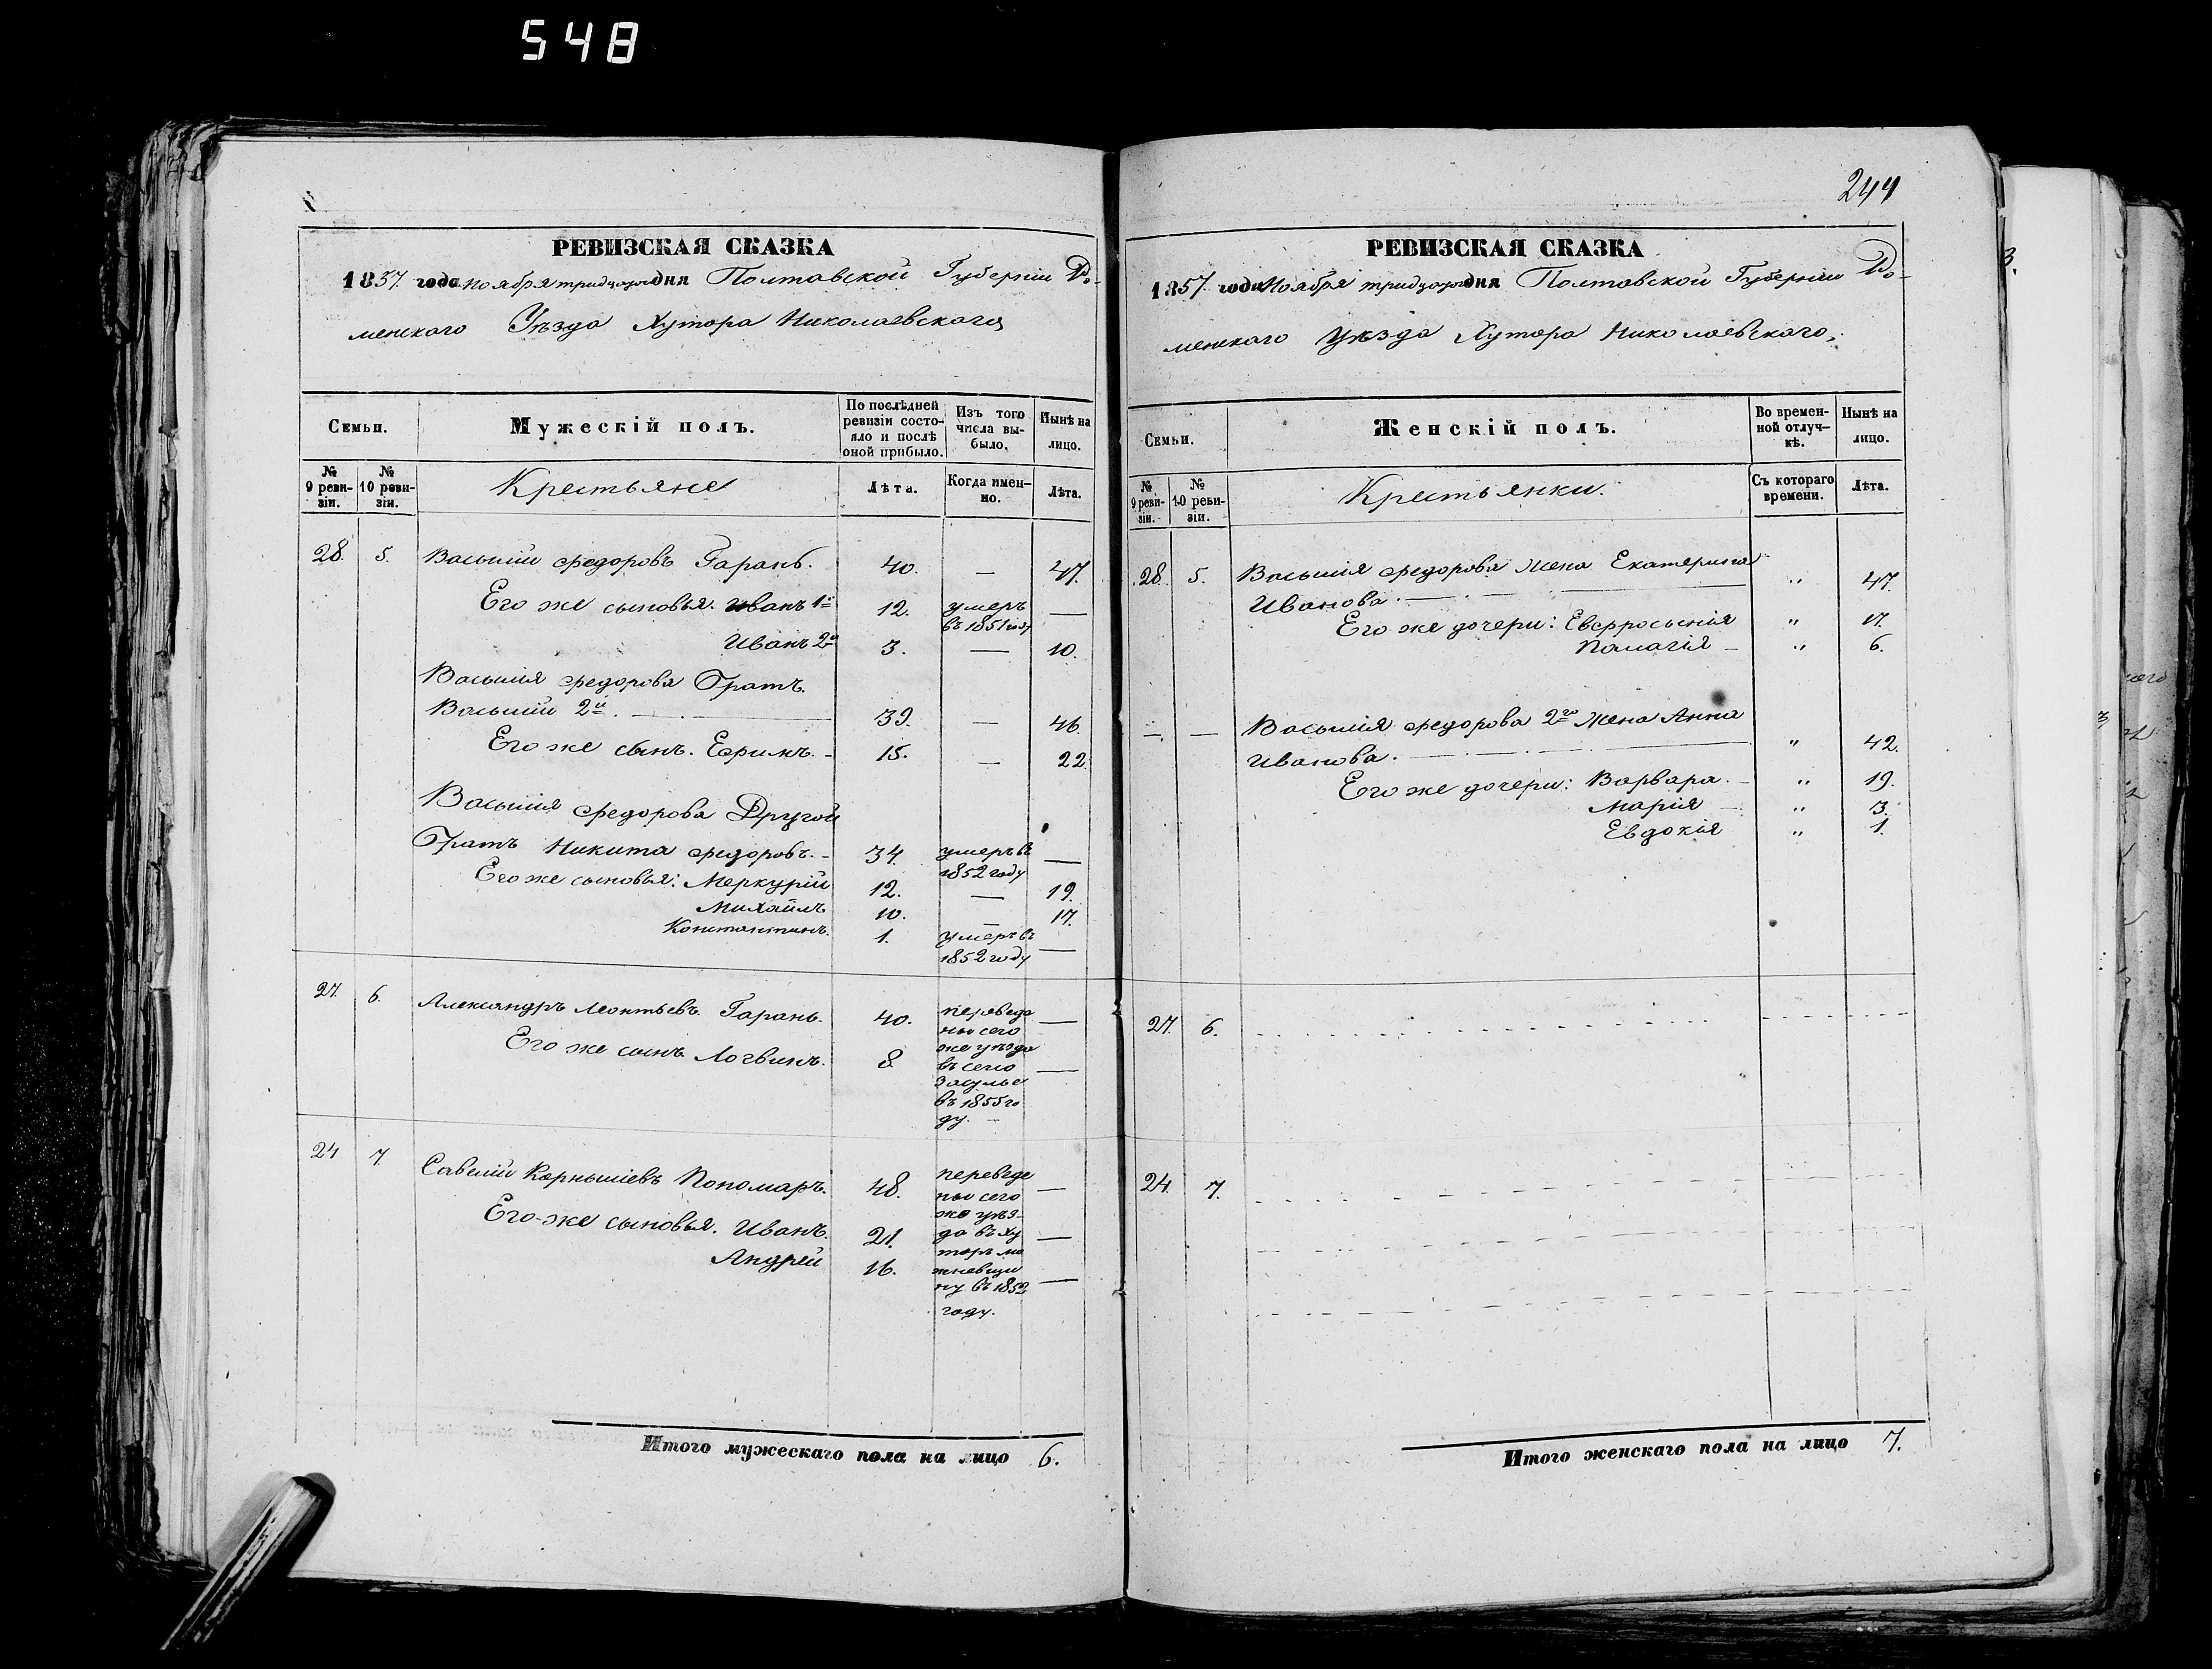 548
244
РЕВИЗСКАЯ СКАЗКА
1857 года Ноября тридцатого дня Полтавской Губернiи Ро-
менскаго Уѣзда Хутора Николаевскаго
Семьи.
Мужескiй полъ.
По послѣдней ревизiи состо-
яло и послѣ оной прибыло.
Изъ того числа вы-
было.
Нынѣ на лицо.
№ 9 реви-
зiи.
№ 10 реви-
зiи.
Крестьяне
Лѣта.
Когда имен-
но.
Лѣта.
28. 5. Василiй Федоровъ Гарань. 40. — 47.
Его же сыновья. Иванъ 1й 12. умеръ въ 1851 году —
Иванъ 2й 3. — 10.
Василiя Федорова Братъ.
Василiй 2й. 39. — 46.
Его же сынъ. Ефимъ. 15. — 22.
Василiя Федорова Другой
Братъ Никита Федоровъ. 34. умеръ въ 1852 году —
Его же сыновья: Меркурiй 12. — 19.
Михайлъ 10. — 17.
Константинъ. 1. умеръ въ 1852 году —
27. 6. Александръ Леонтьевъ Гарань. 40. —
Его же сынъ Логвинъ. 8. —
переведе
ны сего
же уѣзда
въ село
Засулье
въ 1855 го
ду. —
24 7. Савелiй Корнылiевъ Пономарь. 48. —
Его же сыновья. Иванъ. 21. —
Андрей 16. —
переведе
ны сего
же уѣз-
да въ ху
торъ
въ 1852
году.
Итого мужескаго пола на лицо 6.
РЕВИЗСКАЯ СКАЗКА
1857 года Ноября тридцатого дня Полтавской Губернiи Ро-
менскаго Уѣзда Хутора Николаевскаго.
Семьи.
Женскiй полъ.
Во времен-
ной отлуч-
кѣ.
Нынѣ на лицо.
№ 9 реви-
зiи.
№ 10 реви-
зiи.
Крестьянки.
Съ котораго времени.
Лѣта.
28. 5. Василiя Федорова жена Екатерина
Иванова. „ 47.
Его же дочери: Евфросынiя „ 17.
Палагiя — „ 6.
— — Василiя Федорова 2го жена Анна
Иванова. „ 42.
Его же дочери: Варвара. — „ 19.
Марiя — „ 3.
Евдокiя „ 1.
27. 6.
24. 7.
Итого женскаго пола на лицо 7.